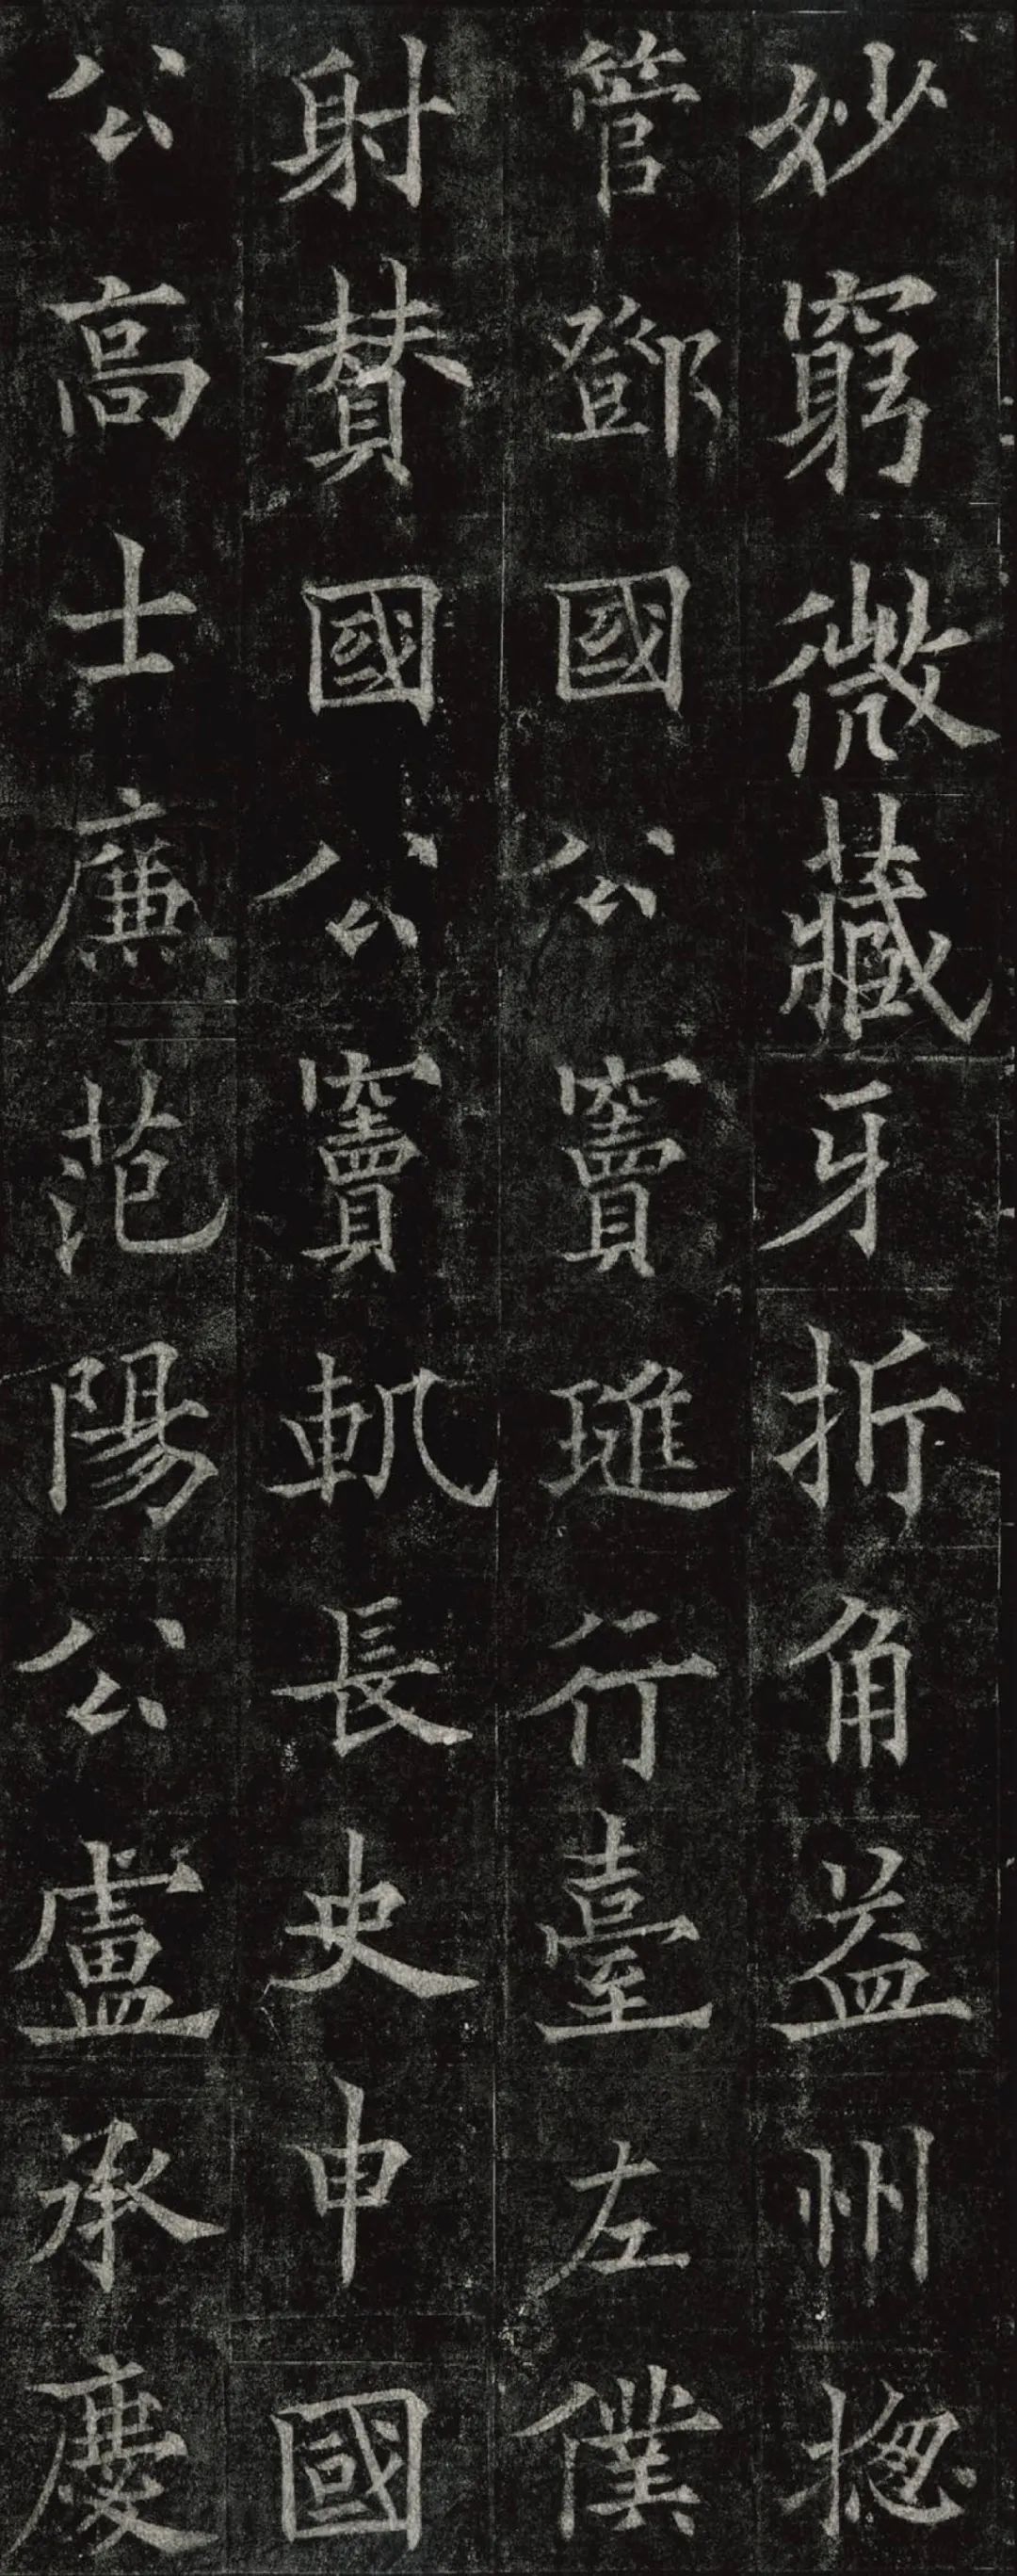 妙窮微藏牙折角益州揔
管鄧國公竇璡行臺左僕
射賛國公竇軌長史申國
公高士廉范陽公盧承慶